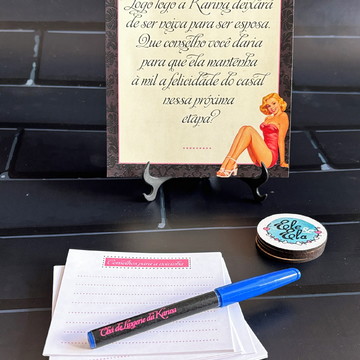 Logo logo a Karina deixará
de ser noiva para ser esposa.
Que conselho você daria
para que ela mantenha
à mil a felicidade do casal
nessa próxima
etapa?
Ele
Ela
Conselhos para a noivinha
Chá de Lingerie da Karina